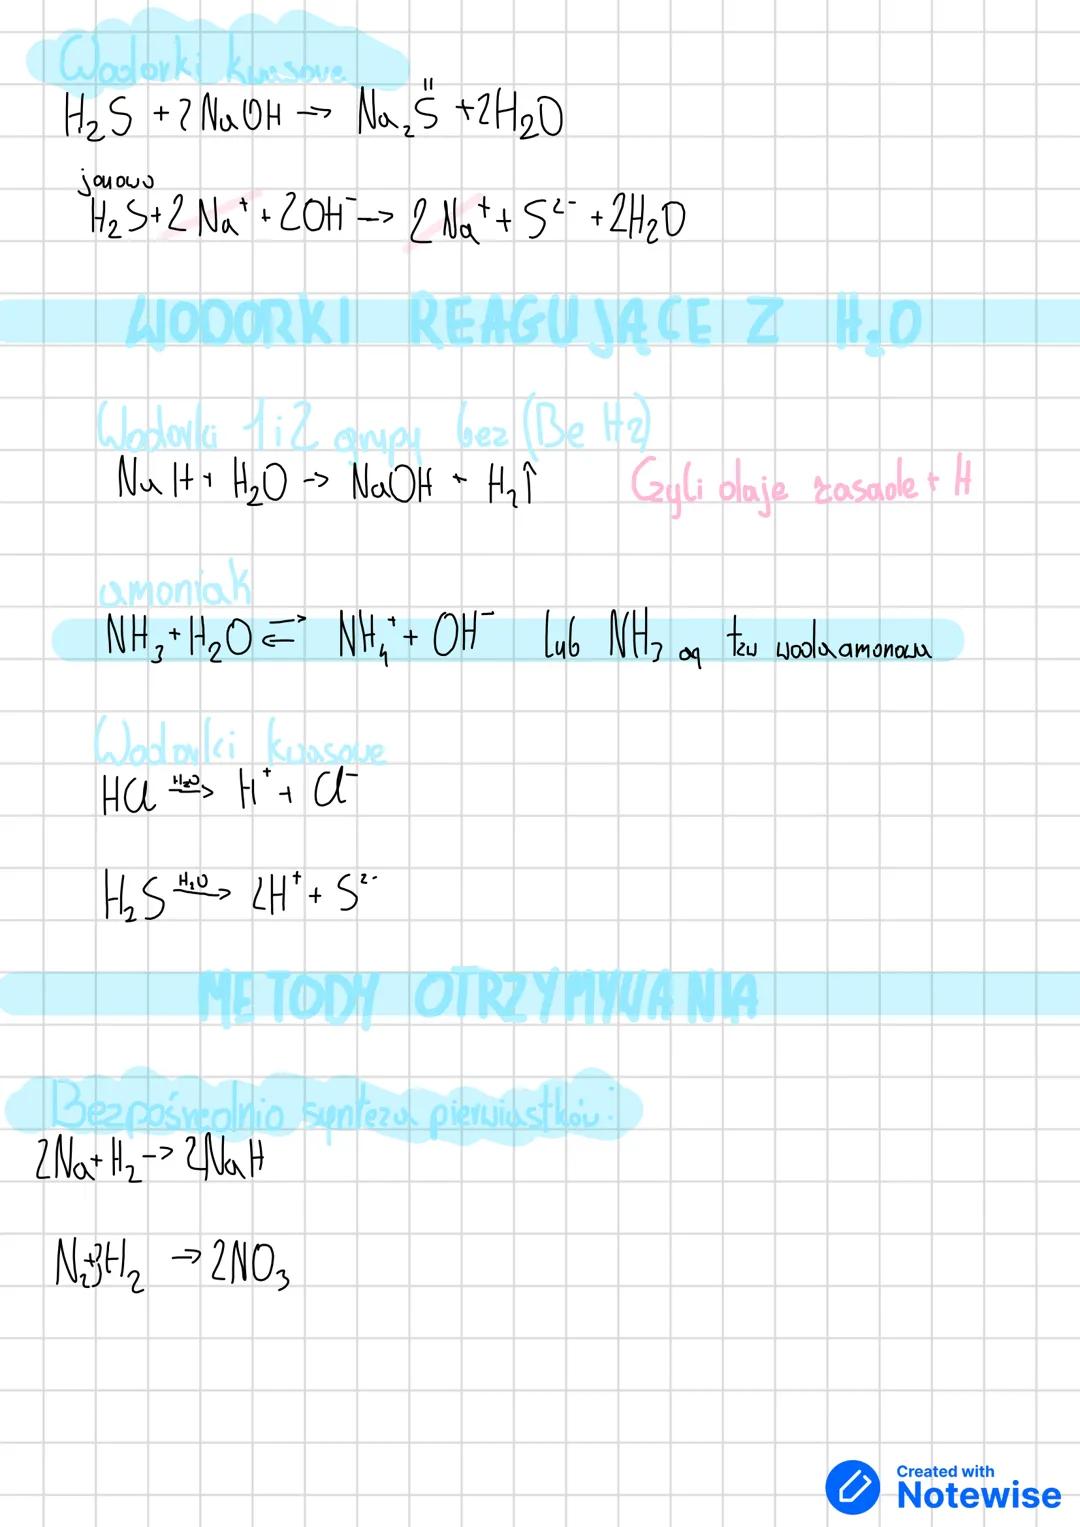 Wodorki kwasowe
H₂S + 2NaOH → Na₂S^II + 2H₂O
jonowo
H₂S + 2Na⁺ + 2OH⁻ → 2Na⁺ + S²⁻ + 2H₂O
WODORKI REAGUJĄCE Z H₂O
Wodorki 1 i 2 grupy bez (BeH₂)
NaH + H₂O → NaOH + H₂↑ Czyli daje zasadę + H
amoniak
NH₃ + H₂O ⇄ NH₄⁺ + OH⁻ lub NH₃ aq tzw woda amonowa
Wodorki kwasowe
HCl –H₂O→ H⁺ + Cl⁻
H₂S –H₂O→ 2H⁺ + S²⁻
METODY OTRZYMYWANIA
Bezpośrednio synteza pierwiastków:
2Na + H₂ → 2NaH
N₂ + 3H₂ → 2NO₃
Created with
Notewise